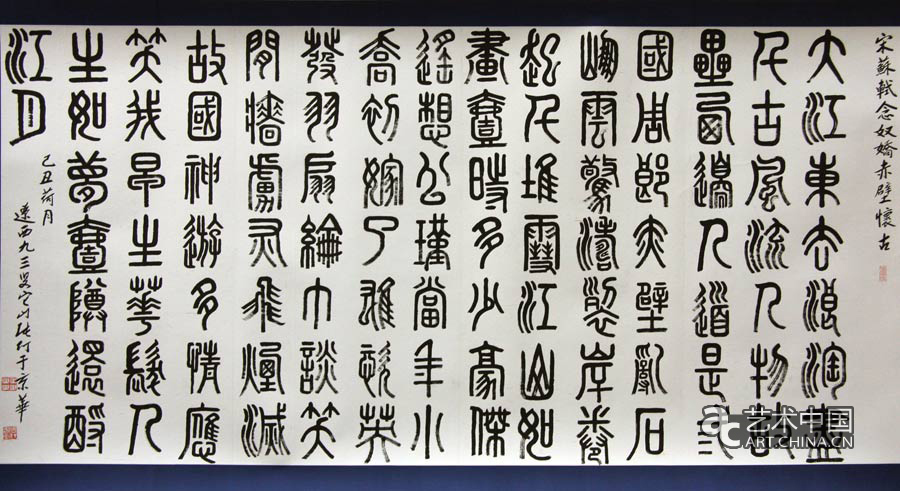 宋蘇軾念奴嬌赤壁懷古
大江東去浪淘盡
千古風流人物故
壘西邊人道是三
國周郎赤壁亂石
崩雲驚濤裂岸卷
起千堆雪江山如
畫壹時多少豪傑
遙想公瑾當年小
喬初嫁了雄姿英
發羽扇綸巾談笑
閒牆虜灰飛煙滅
故國神遊多情應
笑我早生華髮人
生如夢壹樽還酹
江月
己丑荷月
遼西九三叟它山張仃于京華
艺术中国
ART.CHINA.CN